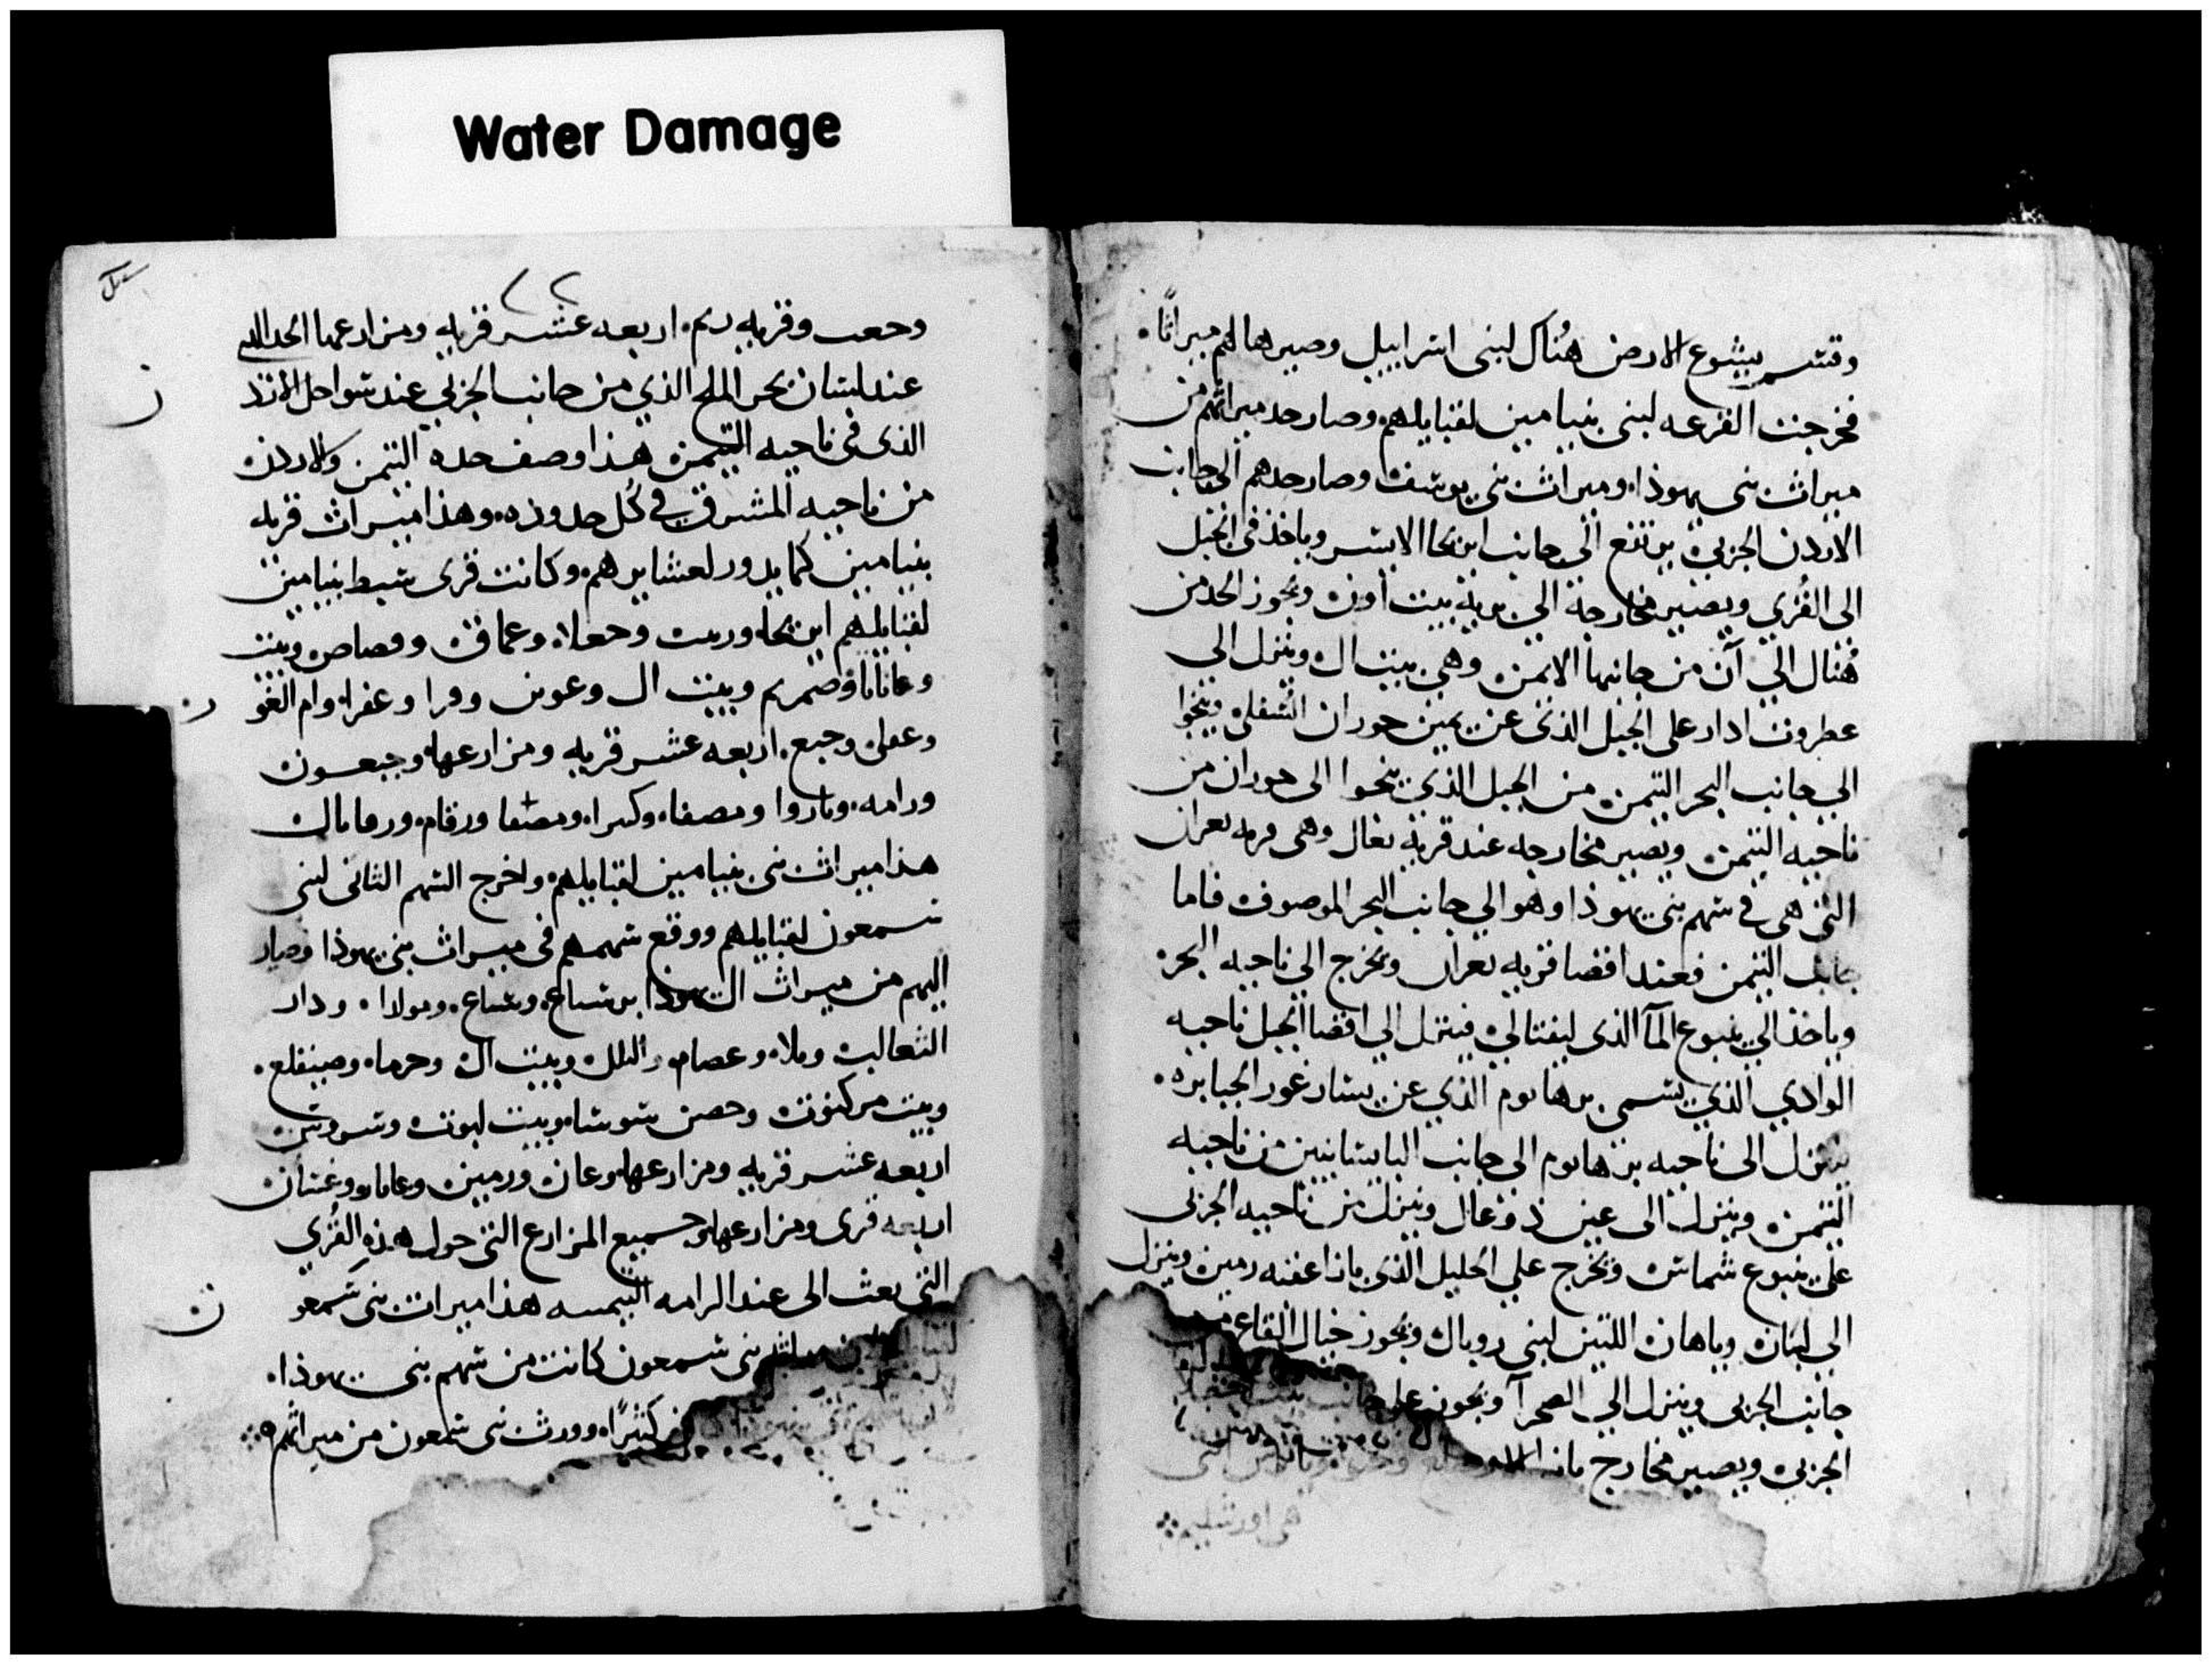 Water Damage
وقسم يشوع الارض هُناك لبنى اسراييل وصيرها لهم ميراثًا.
فخرجت القرعه لبنى بنيامين لقبايلهم وصار حد ميراثهم من
ميراث بنى يهوذا. وميراث بنى يوسف وصار حدهم الى جانب
الاردن الجربى يرتفع الى جانب ايريحا الايسر وياخذ فى الجبل
الى القُرى ويصير مخارجه الى برية بيت اون ويجوز الحد من
هُناك الى آن من جانبها الايمن وهى بيت ال وينزل الى
عطروت ادار على الجبل الذى عن يمين حوران السفلى وينحوا
الى جانب البحر التيمن من الجبل الذى ينحوا الى حوران من
ناحيه التيمن ويصير مخارجه عند قرية بعال وهى قريه يعرال
التى هى فى سهم بنى يهوذا وهو الى جانب البحر الموصوف فاما
جانب التيمن فعند اقصا قريه يعرال ويخرج الى ناحيه البحر
وياخذ الى ينبوع المآ الذى لبفتالى فينزل الى اقصا الجبل ناحيه
الوادى الذى يسمى برهانوم الذى عن يسار غور الجبابره.
ينزل الى ناحيه برهانوم الى جانب اليابسانيين من ناحيه
التيمن وينزل الى عين ذوعال وينزل من ناحيه الجربى
على ينبوع شماس ويخرج على الجليل الذى باذا عقبه رمين وينزل
الى لبان وباهان اللتين لبنى روبال ويجوز حيال القاع
جانب الجربى وينزل الى الصحرآ ويجوز على
الجربى ويصير مخارج
هى اورشليم
وجعب وقريه يريم. اربعه عشر قريه ومزارعها الحد الذى
عند لسان بحر الملح الذى من جانب الجربى عند سواحل الارد
الذى فى ناحيه التيمن هذا وصف حده التيمن والاردن
من ناحيه المشرق فى كُل حدوده. وهذا ميراث قريه
بنيامين كما يدور لعشايرهم. وكانت قرى سبط بنيامين
لقبايلهم ايريحا وبيت وحعلا. وعماق وقصاص وبيت
وعانانا وصمريم وبيت ال وعوين وفرا وعفرا. وام الغو
وعفلى وجبع. اربعه عشر قريه ومزارعها. وجبعون
ورامه. وباروا ومصفا. وكبرا. ومصفا ورقام. ورفامال
هذا ميراث بنى بنيامين لقبايلهم. واخرج السهم الثانى لبنى
سمعون لقبايلهم ووقع سهمهم فى ميراث بنى يهوذا وصار
اليهم من ميراث ال يهوذا برساع. وساع. ومولادا. ودار
الثعالب وبلا. وعصام. والملك وبيت ال. وحرما. وصينقلع.
وبيت مركبوت وحصن سوسا. وبيت لبوت وسروس
اربعه عشر قريه ومزارعها. وعان ورمين وعاباد وغسان
اربعه قرى ومزارعها. وجميع المزارع التى حول هذه القُرى
التى بعث الى عند الرامه التيمسه هذا ميراث بنى سمعو
ن بنى سمعون كانت من سهم بنى يهوذا.
كثيرًا. وورث بنى سمعون من ميراثهم